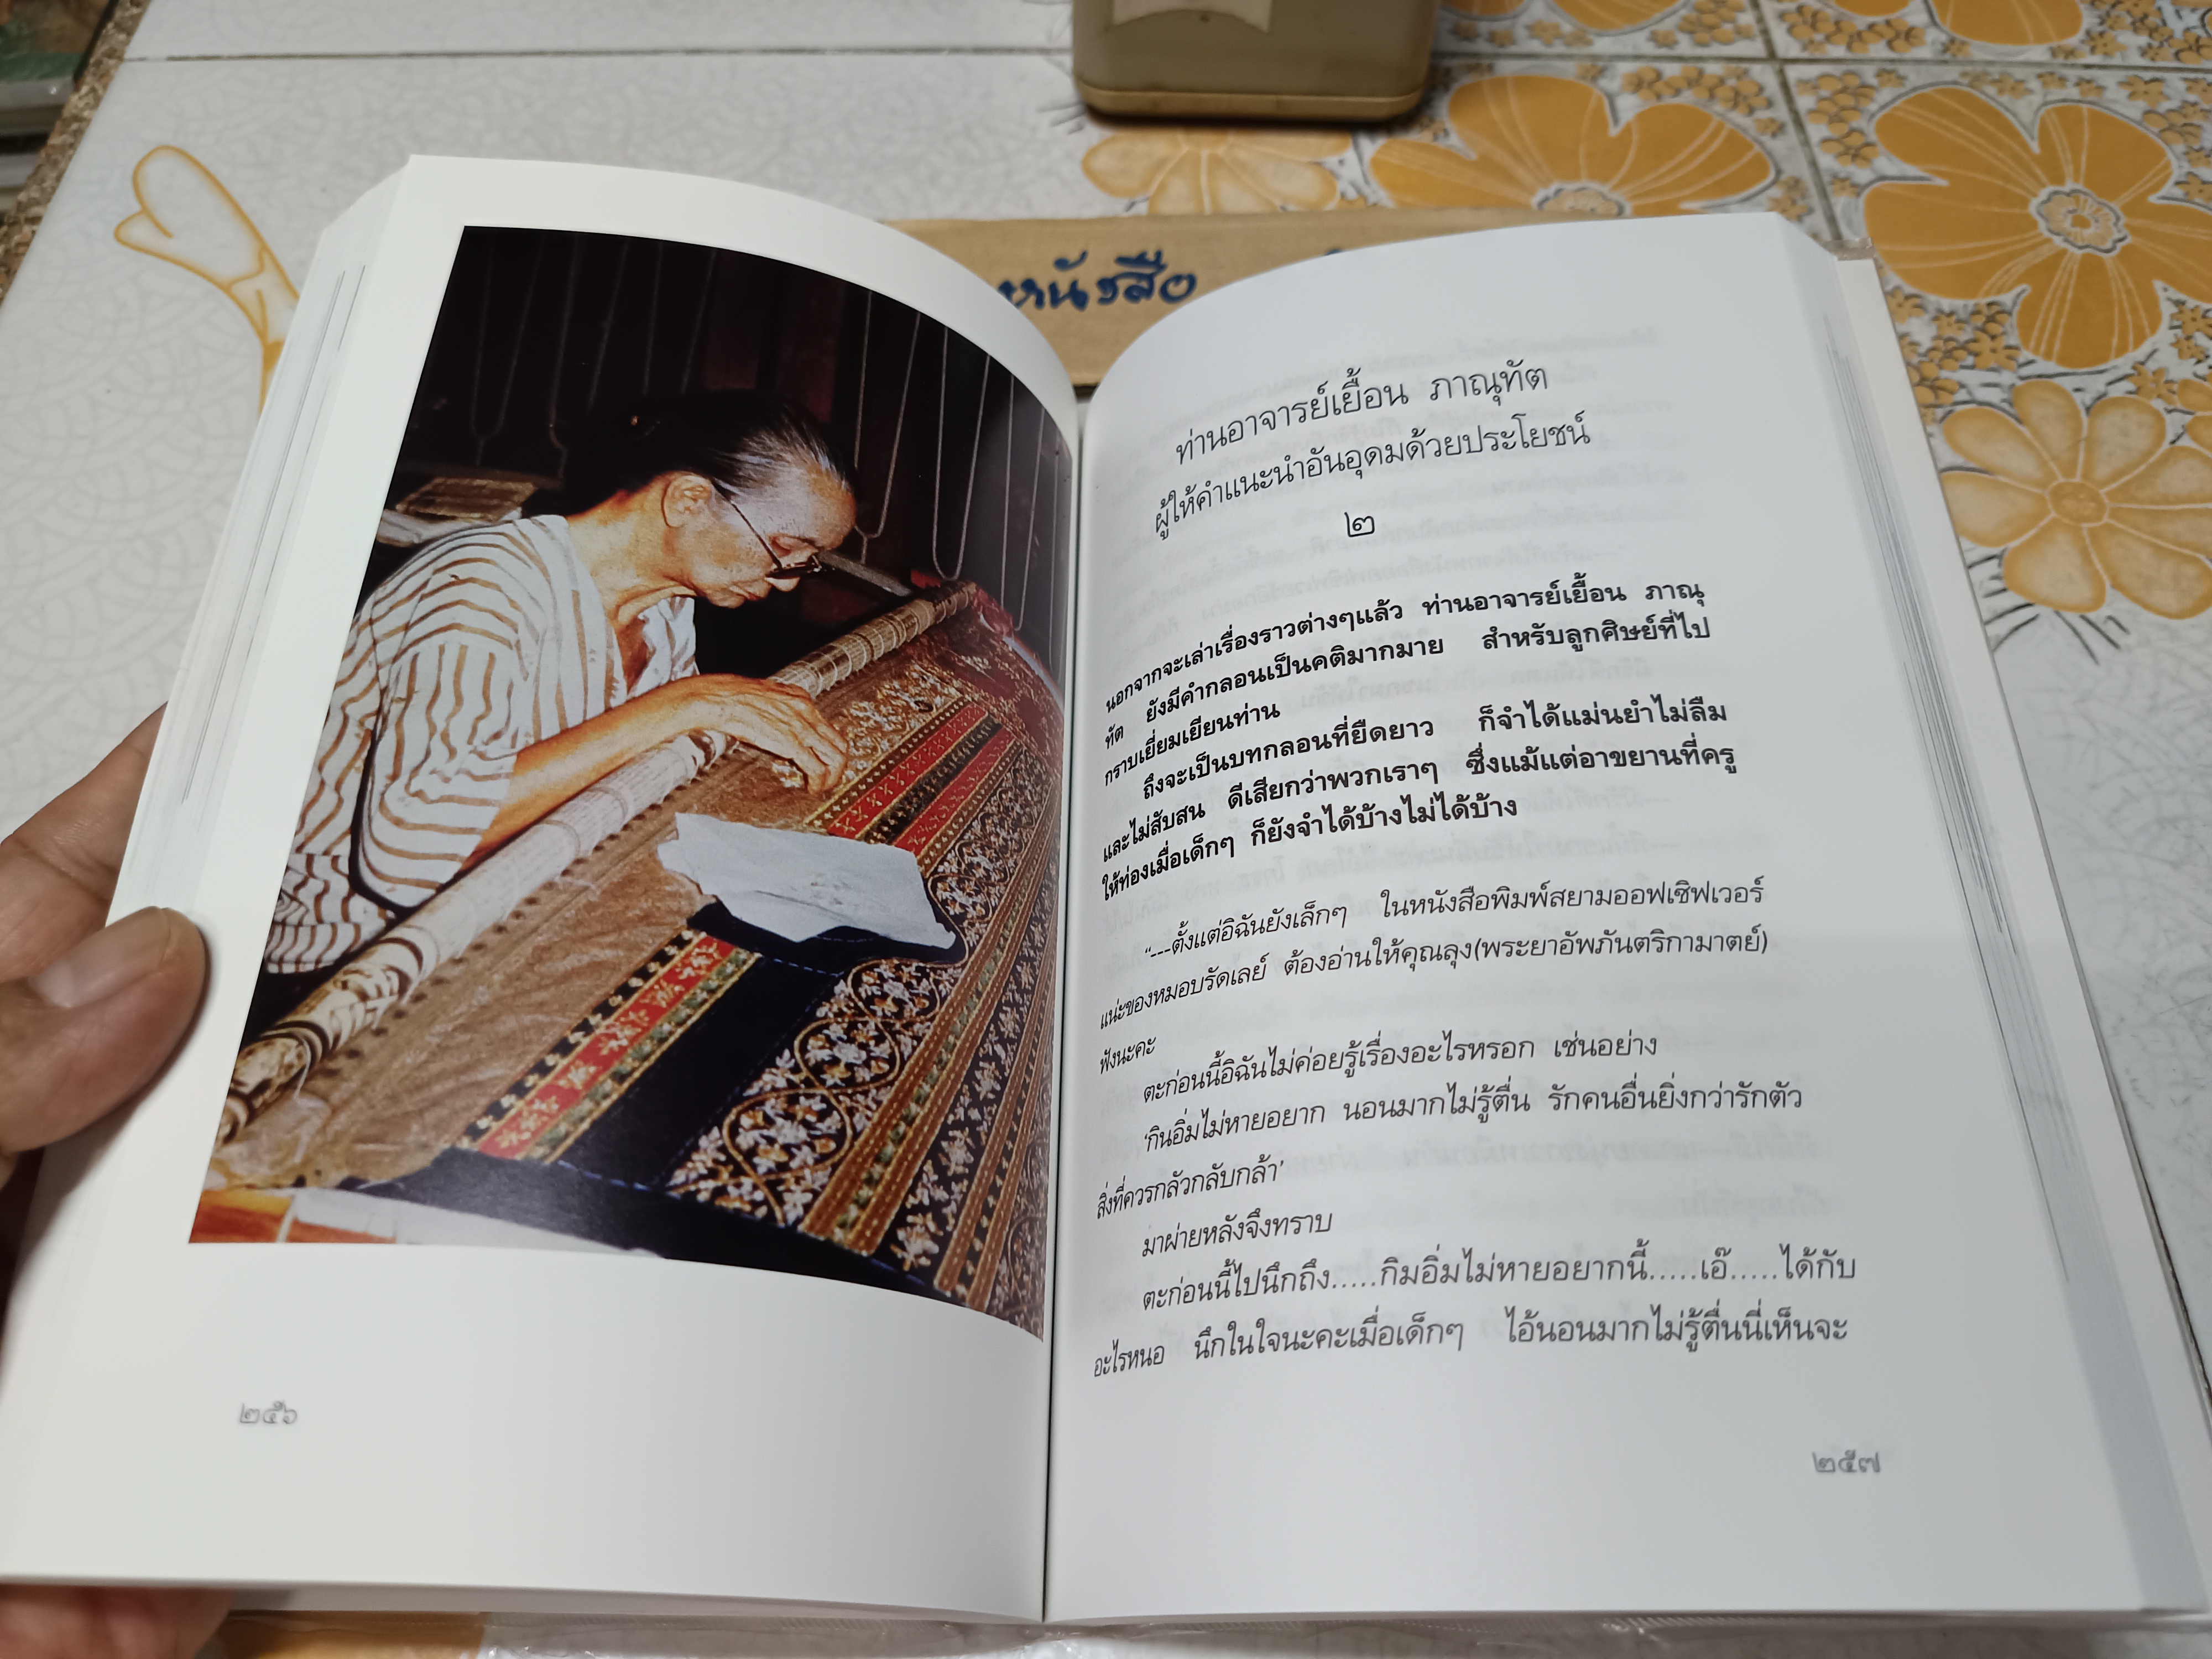 หนังสือ
๒๕๖
ท่านอาจารย์เยื้อน ภาณุทัต
ผู้ให้คำแนะนำอันอุดมด้วยประโยชน์
๒
นอกจากจะเล่าเรื่องราวต่างๆแล้ว ท่านอาจารย์เยื้อน ภาณุ
ทัต ยังมีคำกลอนเป็นคติมากมาย สำหรับลูกศิษย์ที่ไป
กราบเยี่ยมเยียนท่าน
ถึงจะเป็นบทกลอนที่ยืดยาว ก็จำได้แม่นยำไม่ลืม
และไม่สับสน ดีเสียกว่าพวกเราๆ ซึ่งแม้แต่อาขยานที่ครู
ให้ท่องเมื่อเด็กๆ ก็ยังจำได้บ้างไม่ได้บ้าง
“---ตั้งแต่อิฉันยังเล็กๆ ในหนังสือพิมพ์สยามออฟเซิฟเวอร์
แน่ะของหมอบรัดเลย์ ต้องอ่านให้คุณลุง(พระยาอัพภันตริกามาตย์)
ฟังนะคะ
ตะก่อนนี้อิฉันไม่ค่อยรู้เรื่องอะไรหรอก เช่นอย่าง
‘กินอิ่มไม่หายอยาก นอนมากไม่รู้ตื่น รักคนอื่นยิ่งกว่ารักตัว
สิ่งที่ควรกลัวกลับกล้า’
มาผ่ายหลังจึงทราบ
ตะก่อนนี้ไปนึกถึง.....กิมอิ่มไม่หายอยากนี้.....เอ๊.....ได้กับ
อะไรหนอ นึกในใจนะคะเมื่อเด็กๆ ไอ้นอนมากไม่รู้ตื่นนี่เห็นจะ
๒๕๗